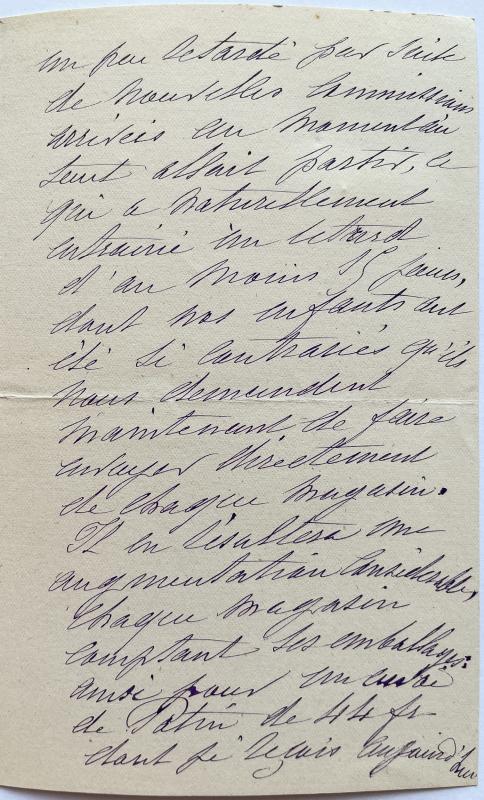 un peu retardé par suite
de nouvelles Commissions
arrivées au moment où
tout allait partir, ce
qui a naturellement
entrainé un retard
d'au moins 15 jours,
dont nos enfants ont
été si contrariés qu'ils
nous demandent
maintenant de faire
envoyer directement
de chaque magasin.
Il en résultera une
augmentation Considerable,
Chaque magasin
comptant ses emballages.
ainsi pour un envoi
de Patin de 44 fr
dont je reçois aujourd'hui